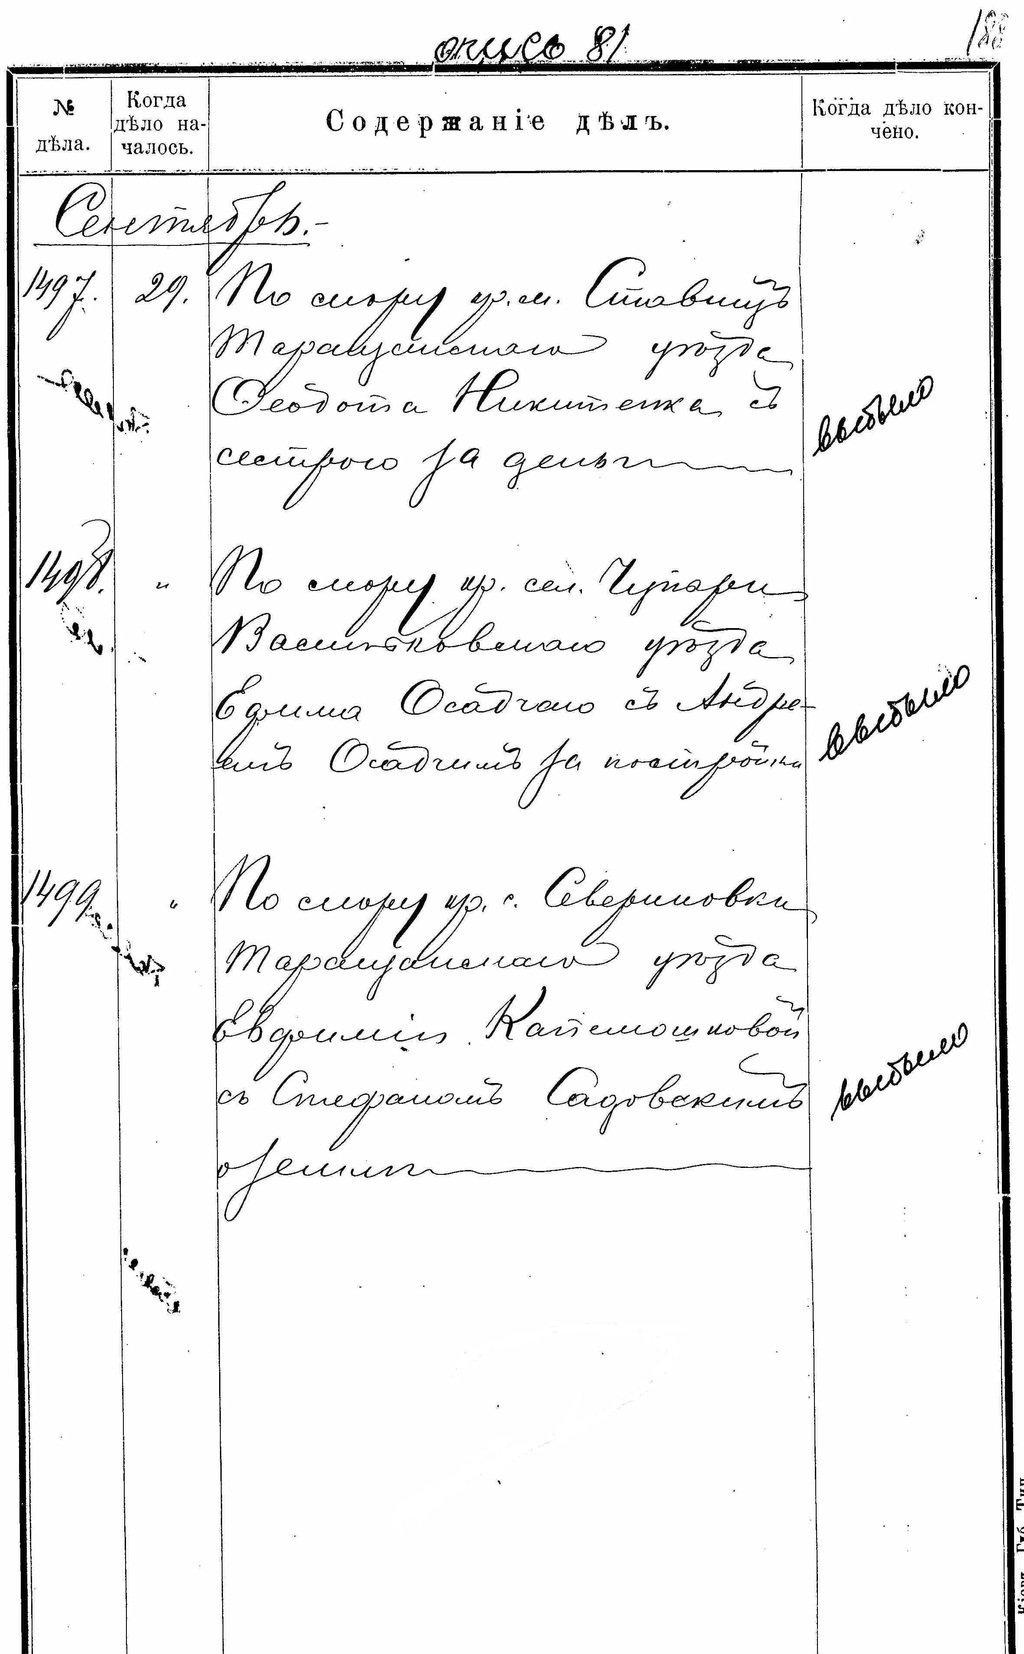 опись 81
№ дѣла.
Когда дѣло началось.
Содержаніе дѣлъ.
Когда дѣло кончено.
Сентябрь.-
1497. 29. По спору кр. м. Ставищъ
Таращанскаго уѣзда
Ѳеодота Никитенка съ
сестрою за деньги
выбыло
1498. " По спору кр. сел. Чупыри
Васильковскаго уѣзда
Ефима Осадчаго съ Андре-
емъ Осадчимъ за постройки
выбыло
1499. " По спору кр. с. Севериновки
Таращанскаго уѣзда
Евфиміи
съ Стефаномъ Садовскимъ
о земли
выбыло
Кіевъ, Губ. Тип.